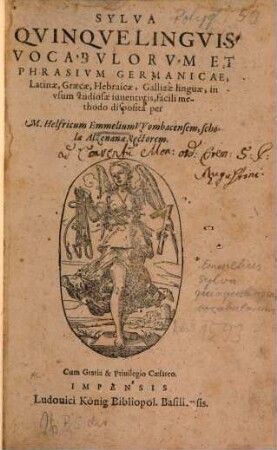 SYLVA
QVINQVELINGVIS
VOCABVLORVM ET
PHRASIVM GERMANICAE,
Latinæ, Græcæ, Hebraicæ, Gallicæ linguæ, in
vsum studiosæ iuuentutis, facili me-
thodo disposita per
M. Helfricum Emmelium VVombacensem, scho-
læ Alzenanæ Rectorem.
Conventu
Emmelius
Sylva
Cum Gratia & Priuilegio Cæsareo.
IMPENSIS
Ludouici König Bibliopol. Basili sis.